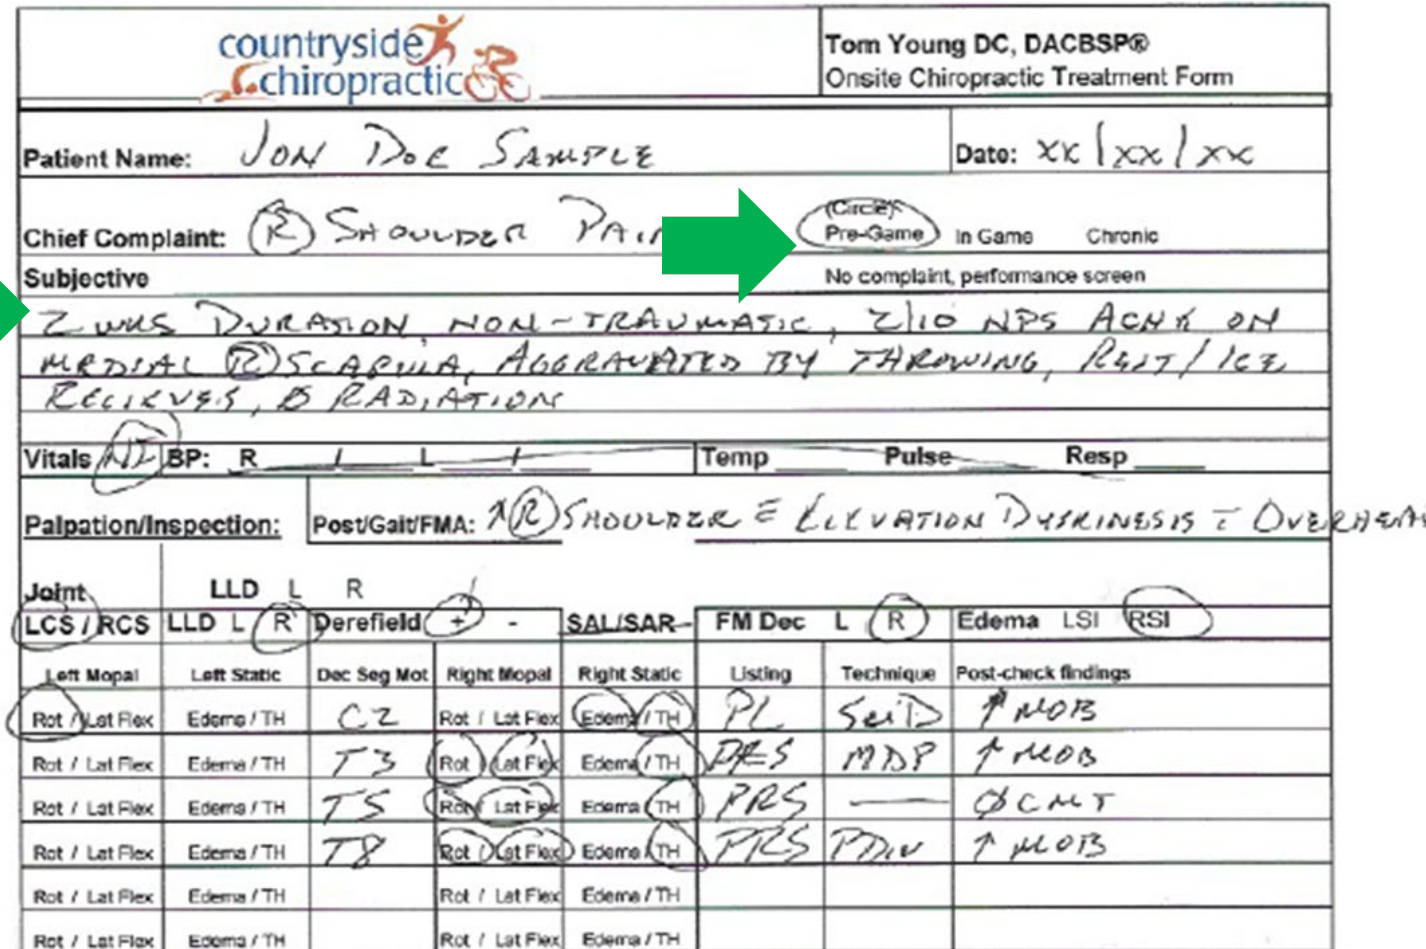 countryside
chiropractic
Tom Young DC, DACBSP®
Onsite Chiropractic Treatment Form
Patient Name: JON DOE SAMPLE Date: XX/XX/XX
(Circle)
Chief Complaint: (R) SHOULDER PAIN Pre-Game In Game Chronic
Subjective No complaint, performance screen
2 WKS DURATION NON-TRAUMATIC, 2/10 NPS ACHE ON
MEDIAL (R) SCAPULA, AGGRAVATED BY THROWING, REST/ICE
RELIEVES, Ø RADIATION
Vitals NI BP: R / L / Temp Pulse Resp
Palpation/Inspection: Post/Gait/FMA: ↑(R) SHOULDER c̄ ELEVATION DYSKINESIS c̄ OVERHEAD
Joint LLD L R
LCS / RCS LLD L R Derefield + - SAL/SAR FM Dec L R Edema LSI RSI
Left Mopal Left Static Dec Seg Mot Right Mopal Right Static Listing Technique Post-check findings
Rot / Lat Flex Edema / TH C2 Rot / Lat Flex Edema / TH PL ↑ MOB
Rot / Lat Flex Edema / TH T3 Rot / Lat Flex Edema / TH PRS MDP ↑ MOB
Rot / Lat Flex Edema / TH T5 Rot / Lat Flex Edema / TH PRS — Ø CMT
Rot / Lat Flex Edema / TH T8 Rot / Lat Flex Edema / TH PRS PDiv ↑ MOB
Rot / Lat Flex Edema / TH Rot / Lat Flex Edema / TH
Rot / Lat Flex Edema / TH Rot / Lat Flex Edema / TH